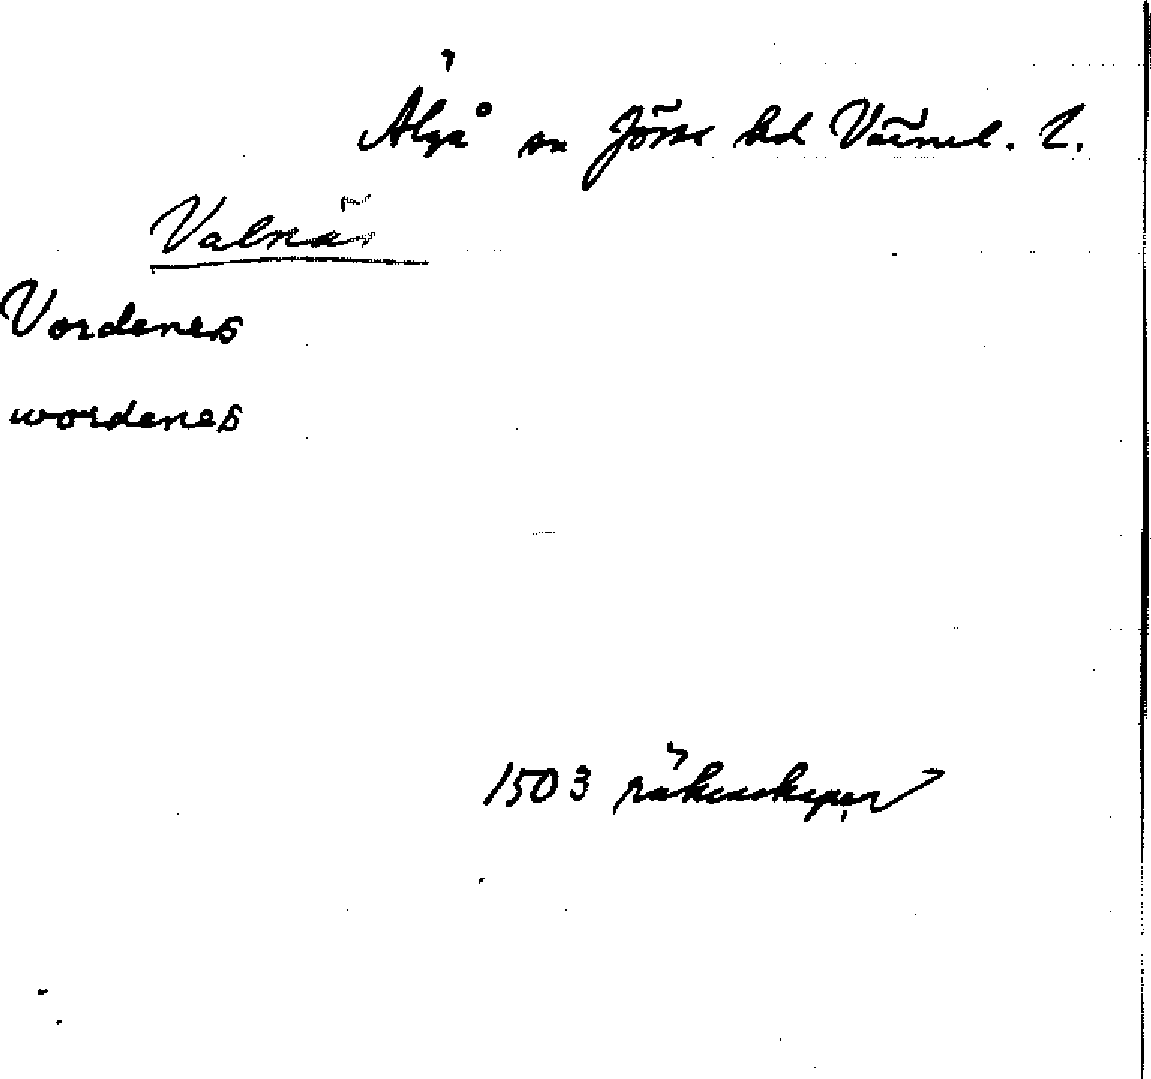 Älgå sn Jösse hd Värml. l.
Valnäs
Vordenes
wordenes
1503 räkenskaper